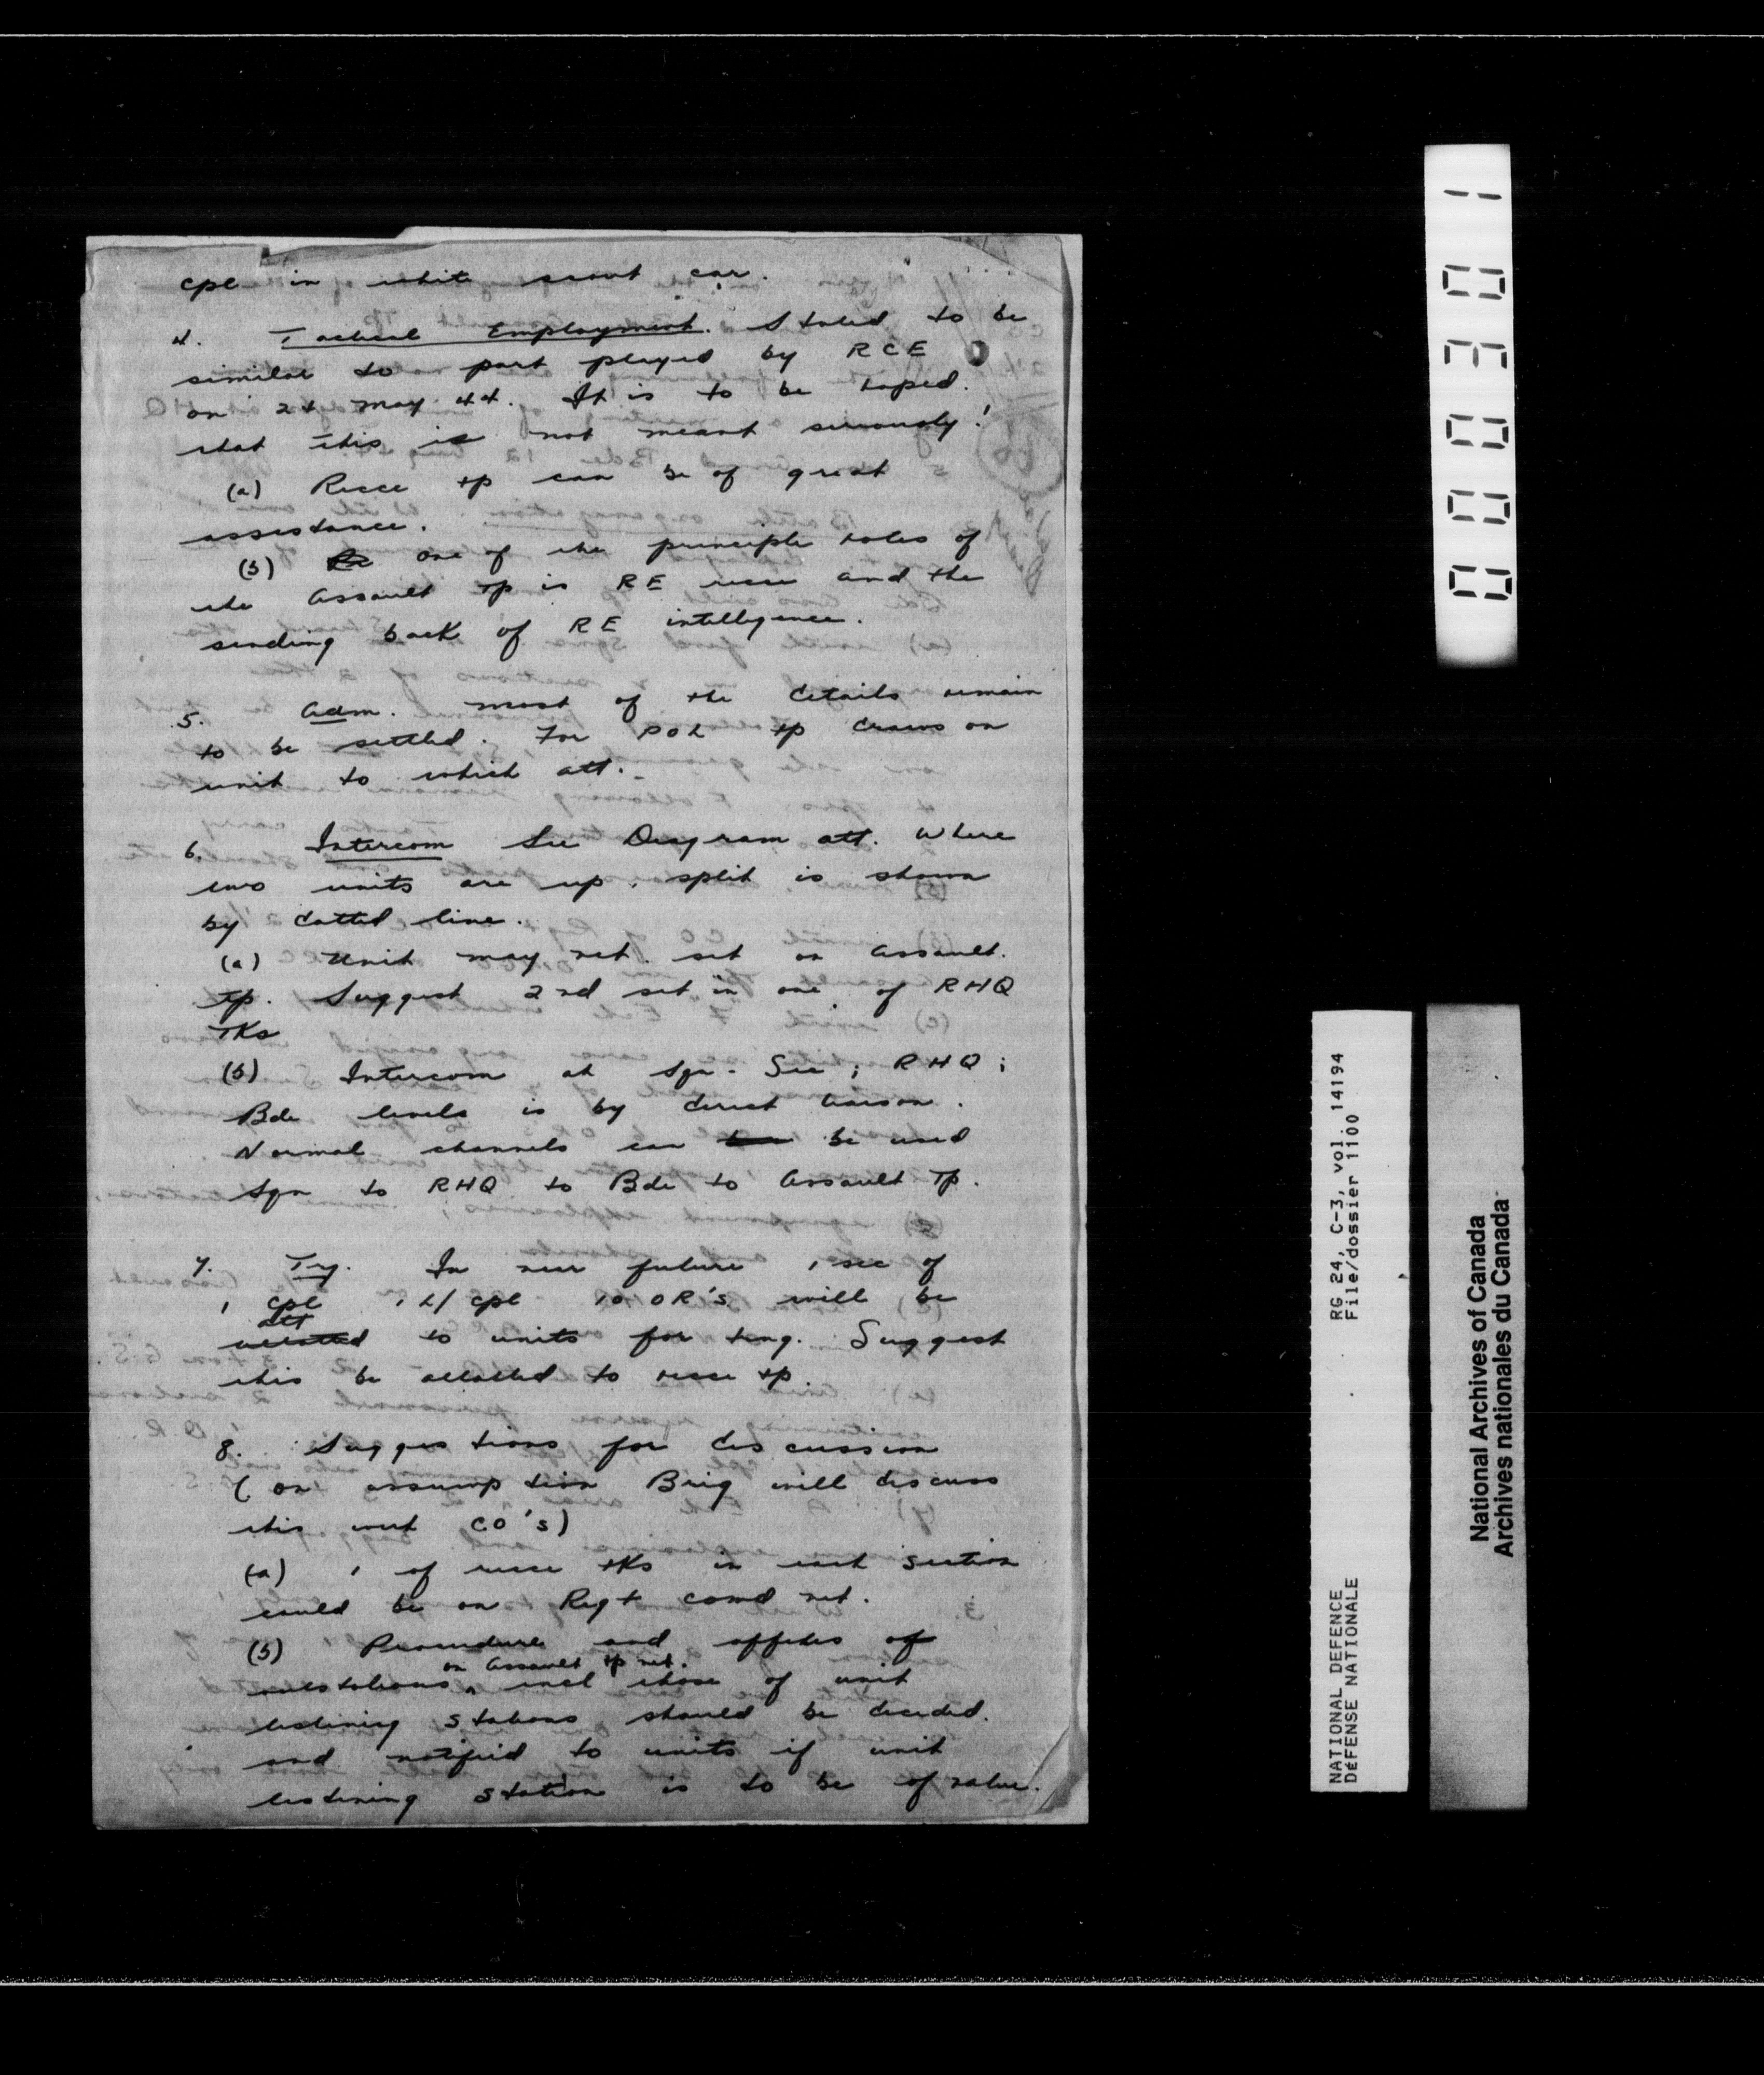 cpl in white scout car.
4. Tactical Employment. Stated to be
similar to part played by RCE
on 24 May 44. It is to be hoped.
that this is not meant seriously!
(a) Recce tp can be of great
assistance.
(b) One of the principle roles of
the Assault Tp is RE recce and the
sending back of RE intelligence.
5. Adm. Most of the details remain
to be settled. For POL tp draws on
unit to which att.
6. Intercom See Diagram att. Where
two units are up, split is shown
by dotted line.
(a) Unit may net set on Assault.
Tp. Suggest 2nd set in one of RHQ
TKs
(b) Intercom at Sqn - Sec; RHQ;
Bde levels is by direct liaison.
Normal channels can be used
Sqn to RHQ to Bde to Assault Tp.
7. Trg. In near future 1 sec of
1 cpl 1 L/cpl 10 OR's will be
att to units for trng. Suggest
this be allotted to recce tp
8. Suggestions for discussion
(on assumption Brig will discuss
this with CO's)
(a) 1 of recce tks in each section
could be on Regt comd net.
(b) Procedure and affxes of
outstations on Assault tp net. incl those of unit
listening stations should be decided.
and notified to units if unit
listening station is to be of value.
000301
RG 24, C-3, vol. 14194
File/dossier 1100
NATIONAL DEFENCE
DÉFENSE NATIONALE
National Archives of Canada
Archives nationales du Canada